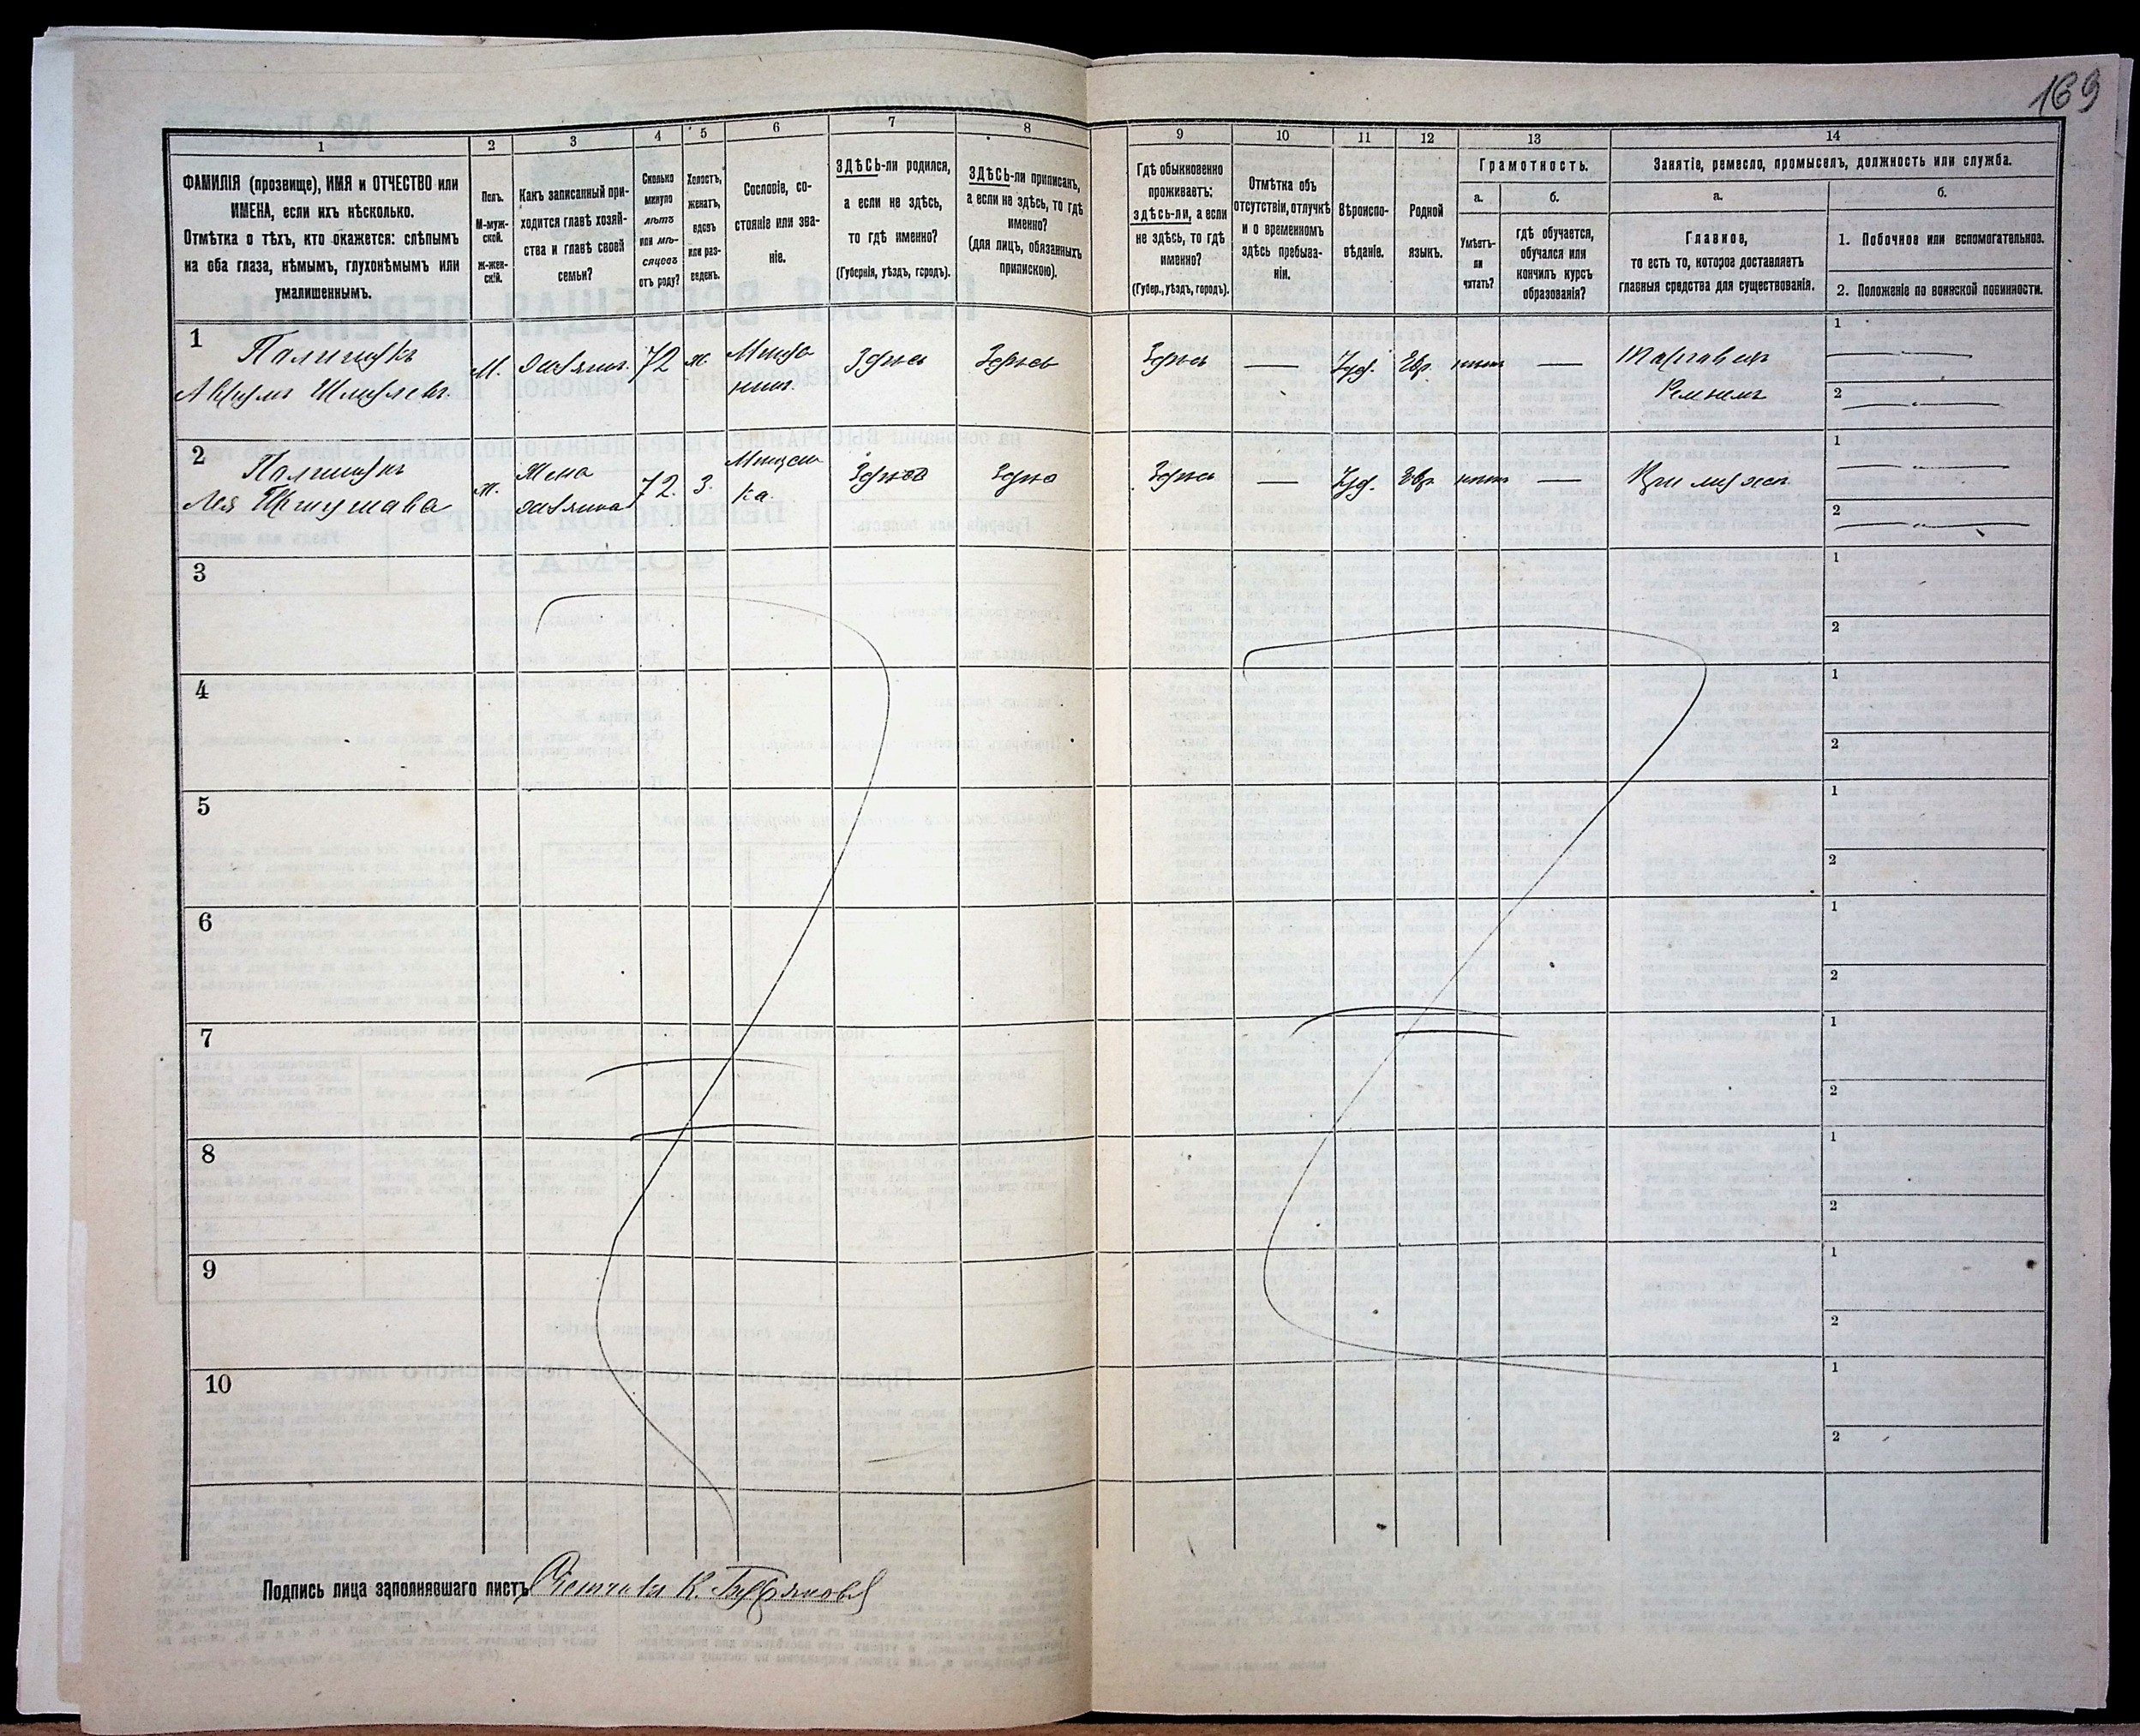 169
1
2
3
4
5
6
7
8
9
10
11
12
13
14
ФАМИЛІЯ (прозвище), ИМЯ и ОТЧЕСТВО или
ИМЕНА, если ихъ нѣсколько.
Отмѣтка о тѣхъ, кто окажется: слѣпымъ
на оба глаза, нѣмымъ, глухонѣмымъ или
умалишеннымъ.
Полъ.
М-муж-
ской.
Ж-жен-
скій.
Какъ записанный при-
ходится главѣ хозяй-
ства и главѣ своей
семьи?
Сколько
минуло
лѣтъ
или мѣ-
сяцевъ
отъ роду?
Холостъ,
женатъ,
вдовъ
или раз-
веденъ.
Сословіе, со-
стояніе или зва-
ніе.
ЗДѢСЬ-ли родился,
а если не здѣсь,
то гдѣ именно?
(Губернія, уѣздъ, городъ).
ЗДѢСЬ-ли приписанъ,
а если не здѣсь, то гдѣ
именно?
(для лицъ, обязанныхъ
припискою).
Гдѣ обыкновенно
проживаетъ:
здѣсь-ли, а если
не здѣсь, то гдѣ
именно?
(Губер., уѣздъ, городъ).
Отмѣтка объ
отсутствіи, отлучкѣ
и о временномъ
здѣсь пребыва-
ніи.
Вѣроиспо-
вѣданіе.
Родной
языкъ.
Грамотность.
а.
б.
Умѣетъ-
ли
читать?
гдѣ обучается,
обучался или
кончилъ курсъ
образованія?
Занятіе, ремесло, промыселъ, должность или служба.
а.
б.
Главное,
то есть то, которое доставляетъ
главныя средства для существованія.
1. Побочное или вспомогательное.
2. Положеніе по воинской повинности.
1
Палишукъ
М.
хозяинъ.
72
ж.
Мѣща
нинъ.
Здѣсь
Здѣсь
Здѣсь
—
Іуд.
Евр.
нѣтъ
—
1
2
2
Палишукъ
Лея
ж.
Жена
хозяина
72.
З.
Мѣщан
ка.
Здѣсь
Здѣсь
Здѣсь
—
Іуд.
Евр.
нѣтъ
—
При мужѣ
1
2
3
1
2
4
1
2
5
1
2
6
1
2
7
1
2
8
1
2
9
1
2
10
1
2
Подпись лица заполнявшаго листъ